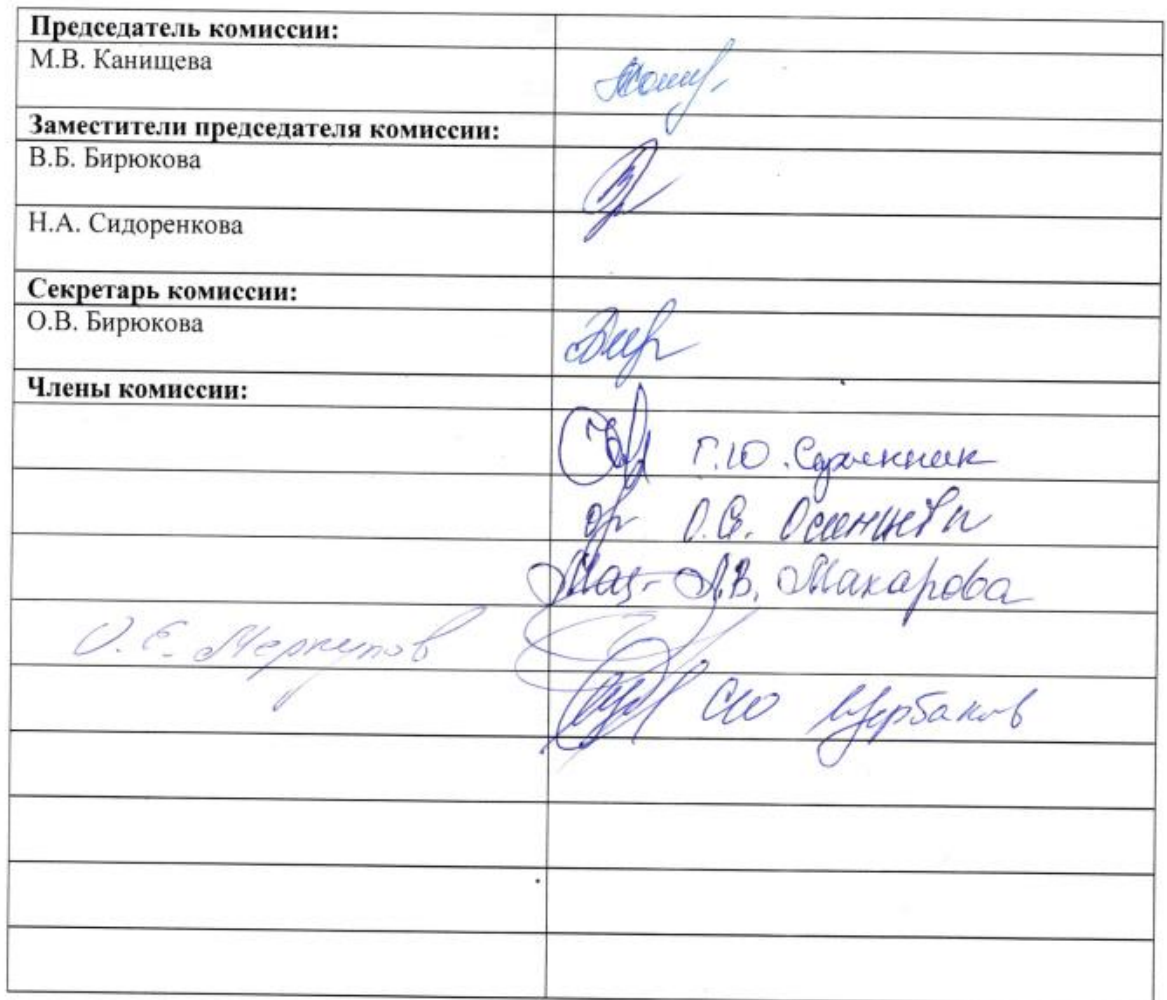 Председатель комиссии:
М.В. Канищева
Заместители председателя комиссии:
В.Б. Бирюкова
Н.А. Сидоренкова
Секретарь комиссии:
О.В. Бирюкова
Члены комиссии:
Г.Ю.
О.В.
Л.В. Макарова
О.Е. Меркулов
СЮ Щербаков